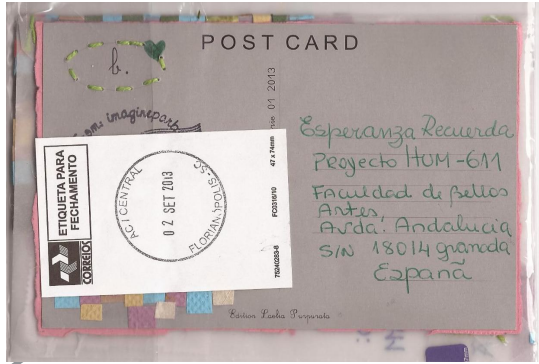 POST CARD
b.
imaginepark
01 2013
ETIQUETA PARA
FECHAMENTO
CORREIOS
AC/CENTRAL
02 SET 2013
FLORIANÓPOLIS-SC
FC0316/10
47 x 74mm
75240263-8
Esperanza Recuerda
Proyecto HUM-611
Facultad de Bellas
Artes,
Avda. Andalucia
S/N 18014 granada
España
Edition Laelia Purpurata